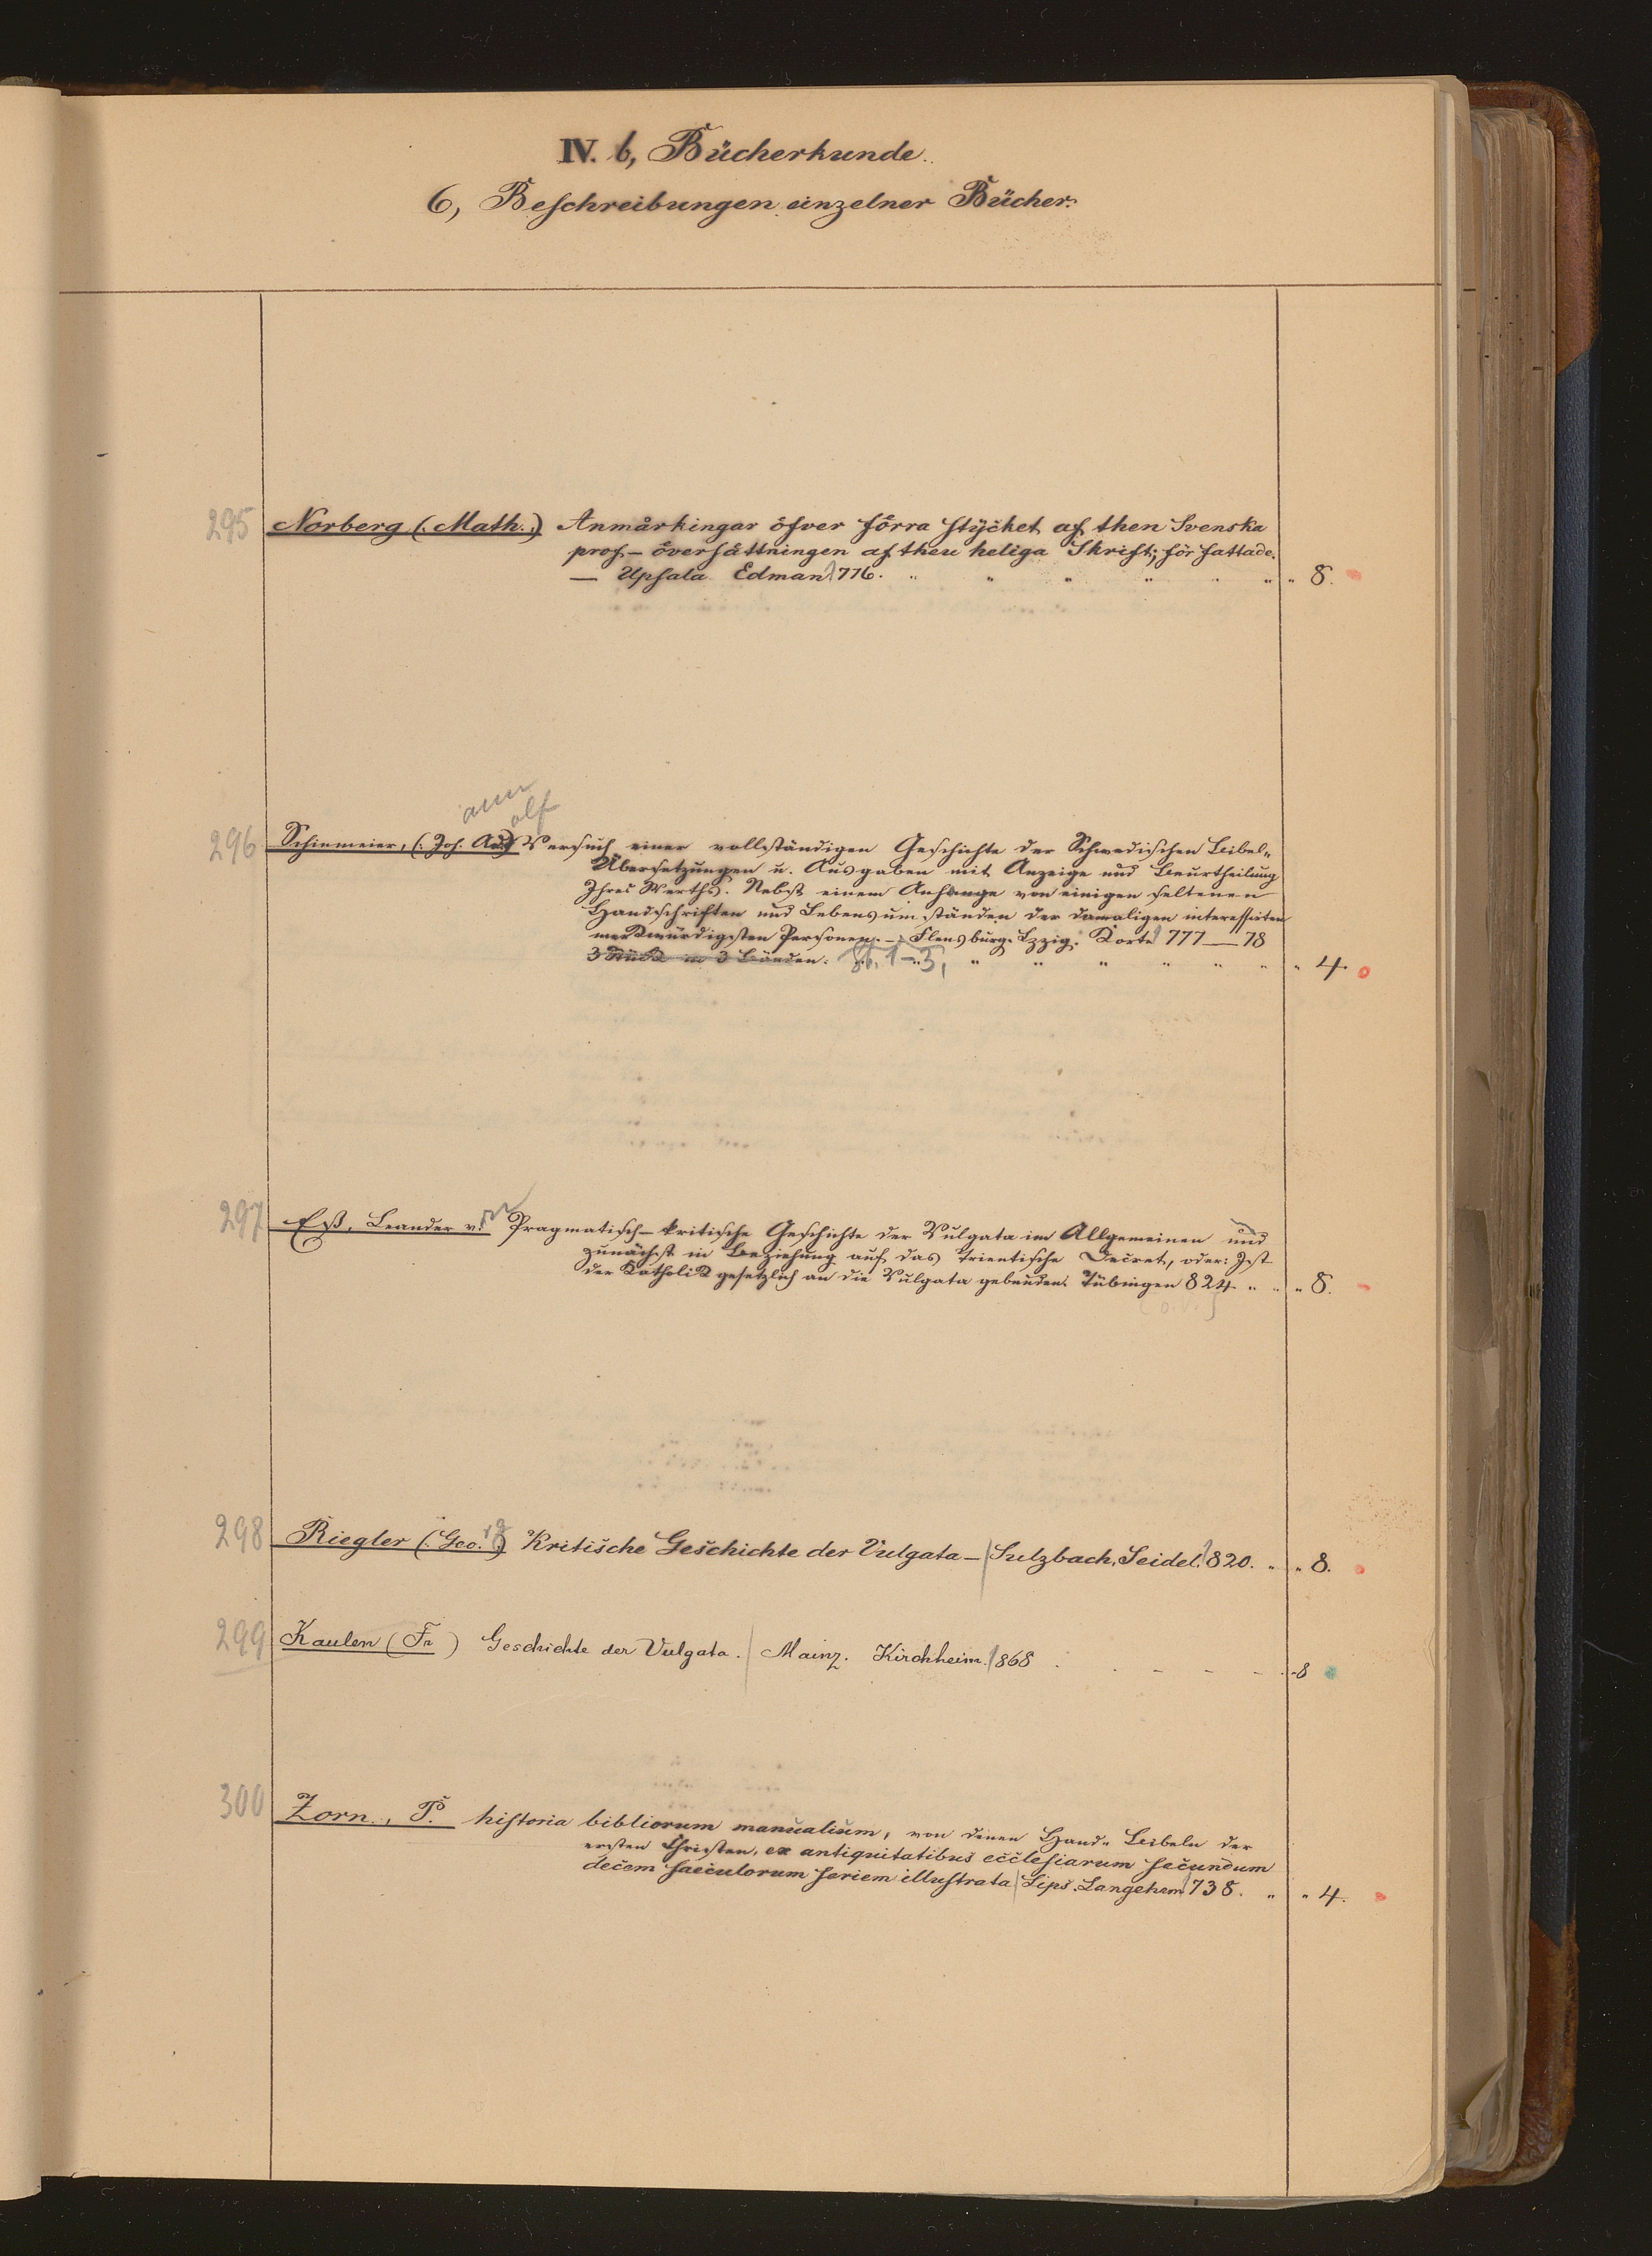 IV. b, Bücherkunde.
6, Beschreibungen einzelner Bücher.
295 Norberg (: Math. :) Anmärkingar öfver förra stycket af then Svenska
prof- öfversättningen af then heliga Skrift; för fattade.
— Upsala Edman 776. " " " " " " " 8.
ann
olf
296 Schinmeier, (: Joh. Ad :) Versuch einer vollständigen Geschichte der Schwedischen Bibel-
Übersetzungen u. Ausgaben mit Anzeige und Beurtheilung
Ihres Werths. Nebst einem Anhange von einigen seltenen
Handschriften und Lebensumständen der damaligen interessirten
merkwürdigsten Personen. — Flensburg. Lpzig. Korte 777—78
3 Stück in 3 Bänden. St. 1–3, " " " " " " " 4.
297 Eß, Leander v. Pragmatisch-kritische Geschichte der Vulgata im Allgemeinen und
zunächst in Beziehung auf das trientische Decret, oder: Ist
der Katholik gesetzlich an die Vulgata gebunden. Tübingen 824 " " " 8.
(o. V.)
298 Riegler (: Geo. rg :) Kritische Geschichte der Vulgata — Sulzbach, Seidel. 820. " " 8.
299 Kaulen (Fr) Geschichte der Vulgata. Mainz. Kirchheim. 868 . . - - - - 8
300 Zorn., P. historia bibliorum manualium, von denen Hand- Bibeln der
ersten Christen, ex antiquitatibus ecclesiarum secundum
decem saeculorum seriem illustrata Lips. Langehem 738. " " 4.